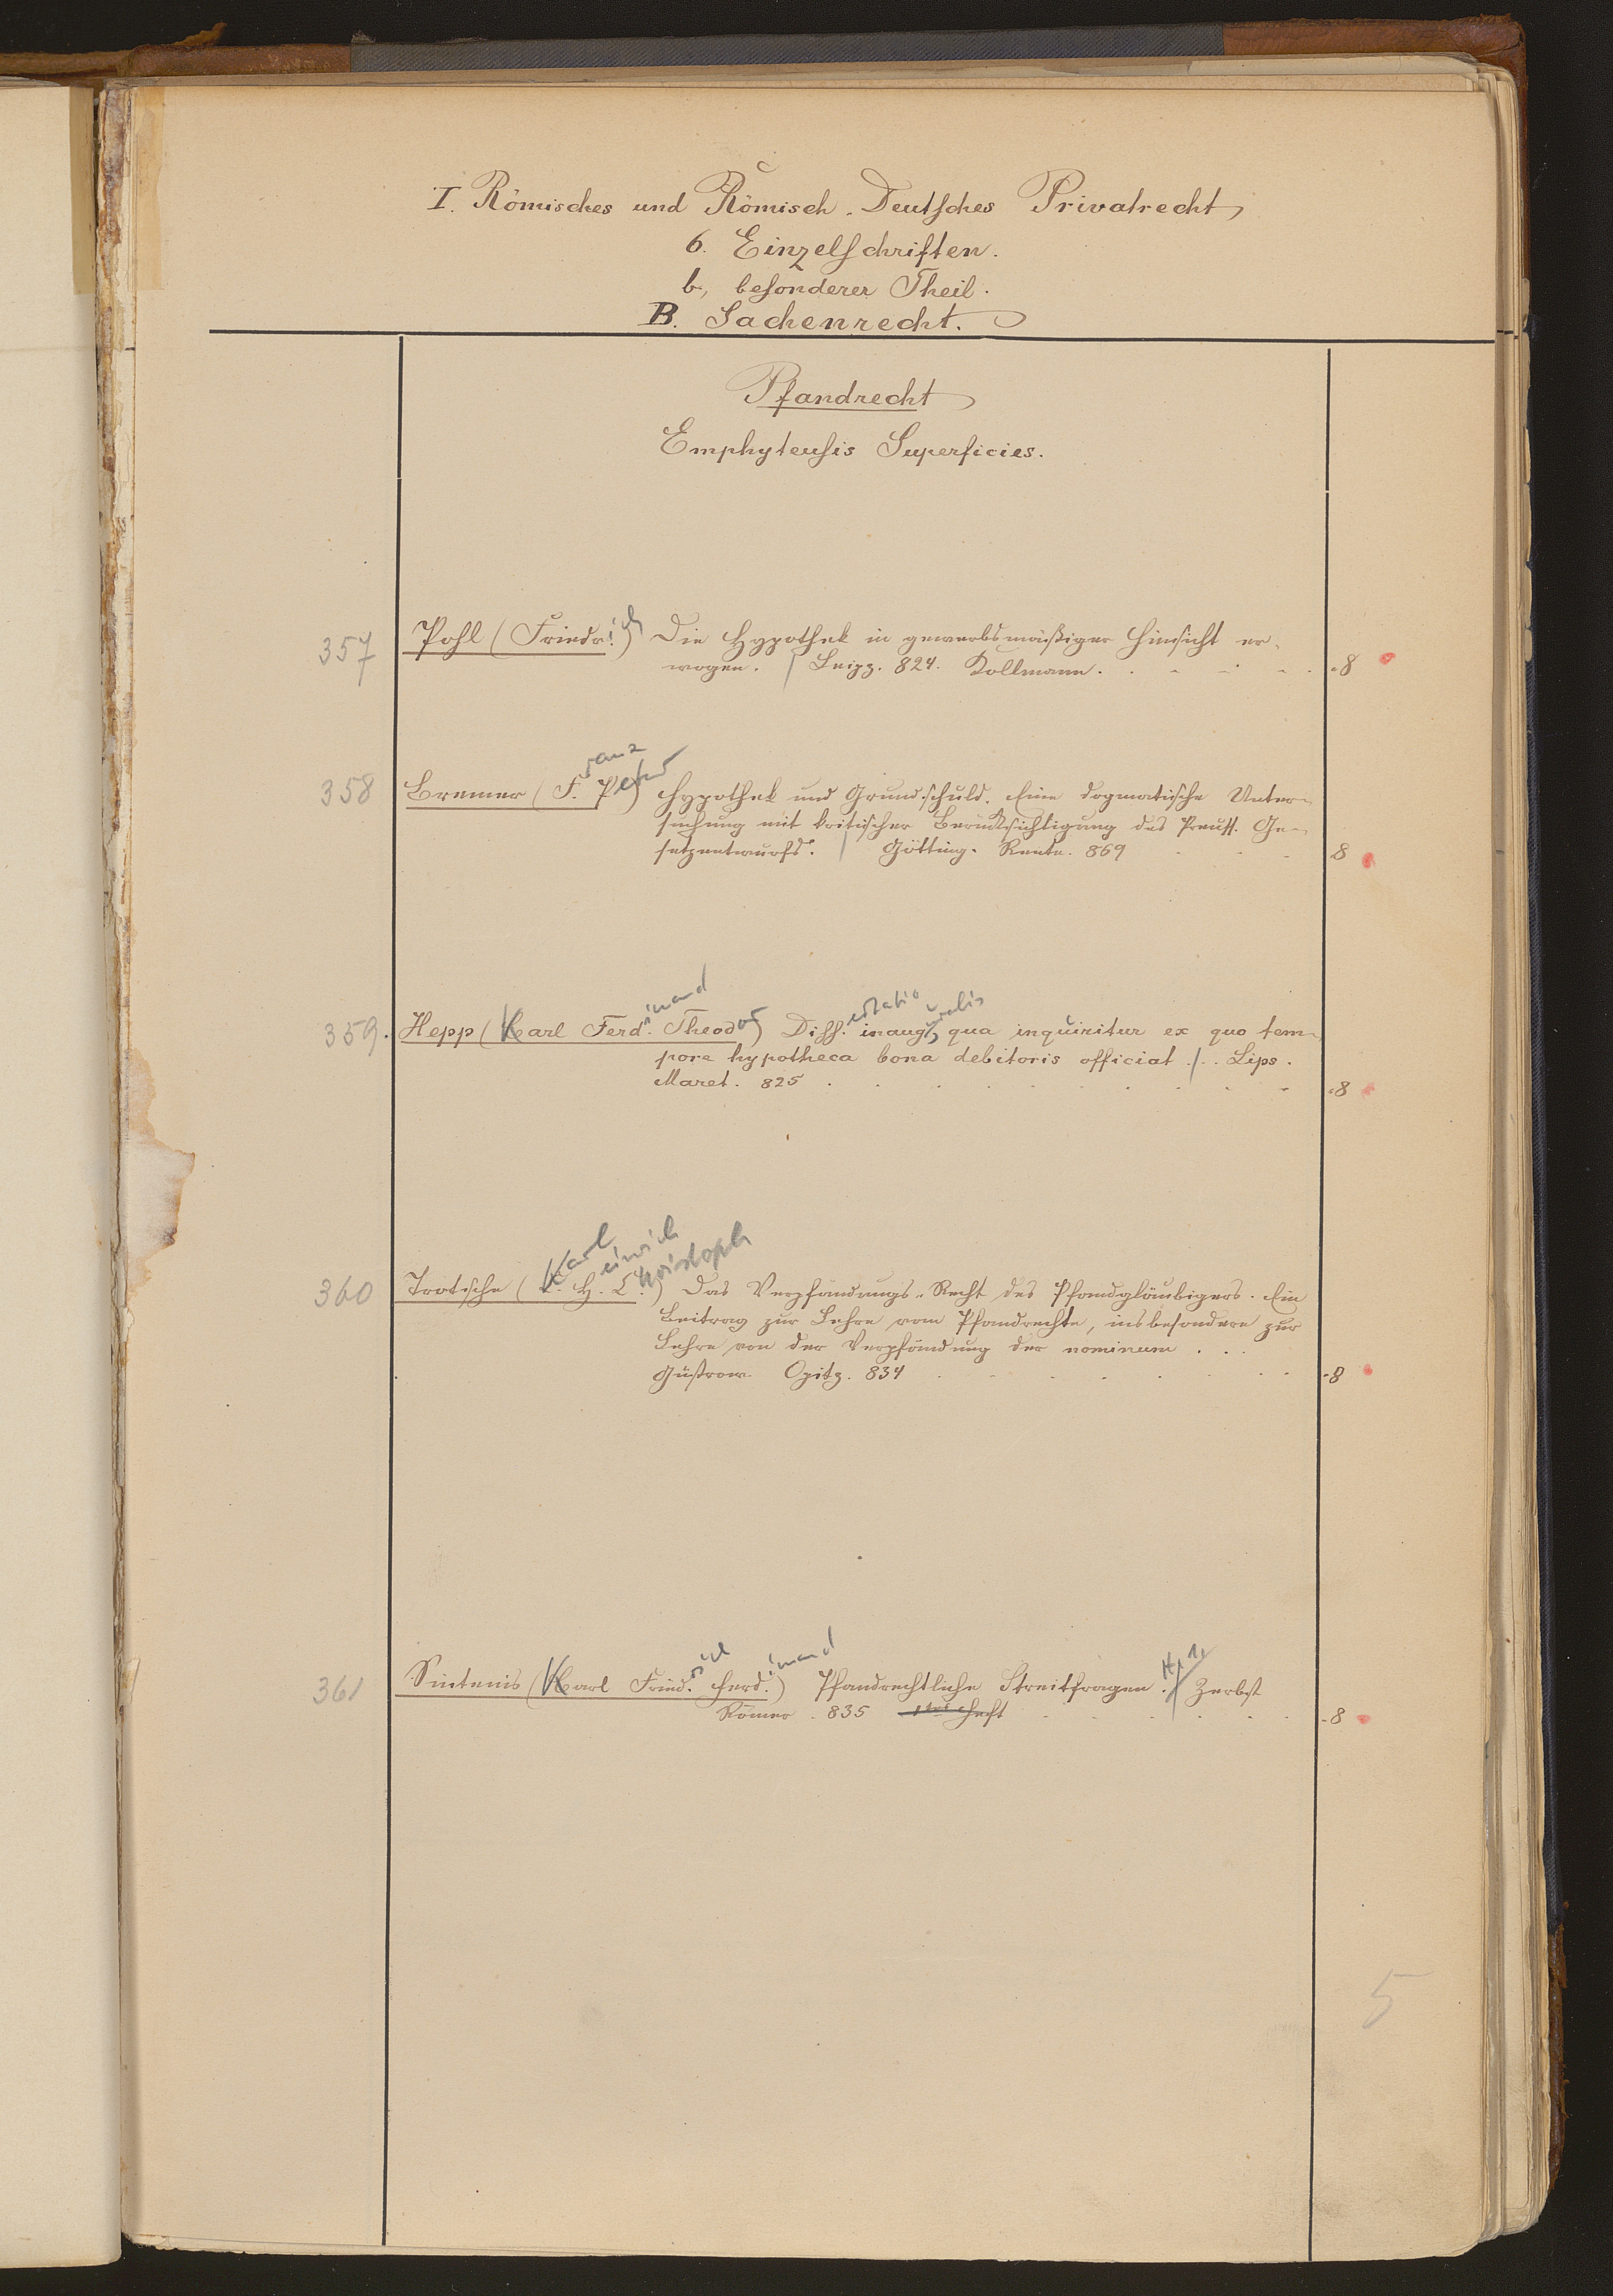 I. Römisches und Römisch-Deutsches Privatrecht
6. Einzelschriften.
b, besonderer Theil.
B. Sachenrecht.
Pfandrecht
Emphyteusis Superficies.
357 Pohl (Friedrich) Die Hypothek in gewerbsmäßiger Hinsicht er-
wogen. / Leipz. 824. Kollmann. 8
358 Bremer (Franz Peter) Hypothek und Grundschuld. Eine dogmatische Unter-
suchung mit kritischer Berücksichtigung des Preuss. Ge-
setzentwurfs. / Götting. Rente. 869 8
359. Hepp (Karl Ferdinand Theodor) Dissertatio inauguralis, qua inquiritur ex quo tem-
pore hypotheca bona debitoris officiat. / Lips.
Maret. 825 8
360 Trotsche (Karl Heinrich Christoph) Das Verpfändungs-Recht des Pfandgläubigers. Ein
Beitrag zur Lehre vom Pfandrechte, insbesondere zur
Lehre von der Verpfändung der nominum . . .
Güstrow Opitz. 834 8
361 Sintenis (Karl Friedrich Ferdinand) Pfandrechtliche Streitfragen. H. 1. / Zerbst
Römer. 835 1tes Heft 8
5